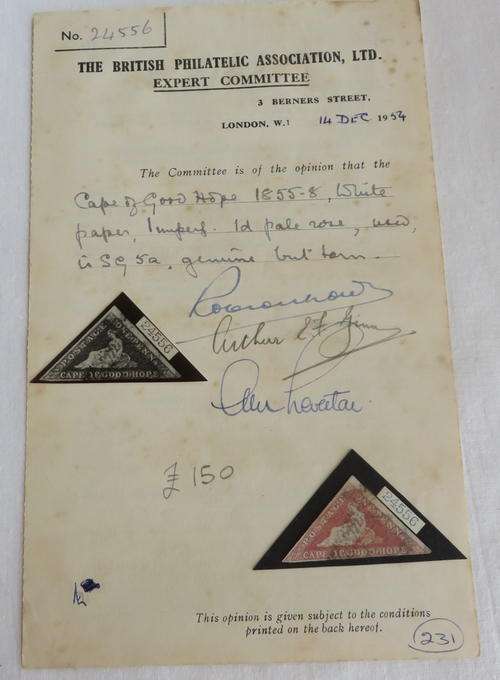 No. 24556
THE BRITISH PHILATELIC ASSOCIATION, LTD.
EXPERT COMMITTEE
3 BERNERS STREET,
LONDON, W.1 14 DEC 1954
The Committee is of the opinion that the
Cape of Good Hope 1855-8, White
paper, Imperf. 1d pale rose, used,
is SG 5a, genuine but torn.
Arthur
POSTAGE ONE PENNY
24556
CAPE OF GOOD HOPE
£150
POSTAGE ONE PENNY
24556
CAPE OF GOOD HOPE
This opinion is given subject to the conditions
printed on the back hereof.
231